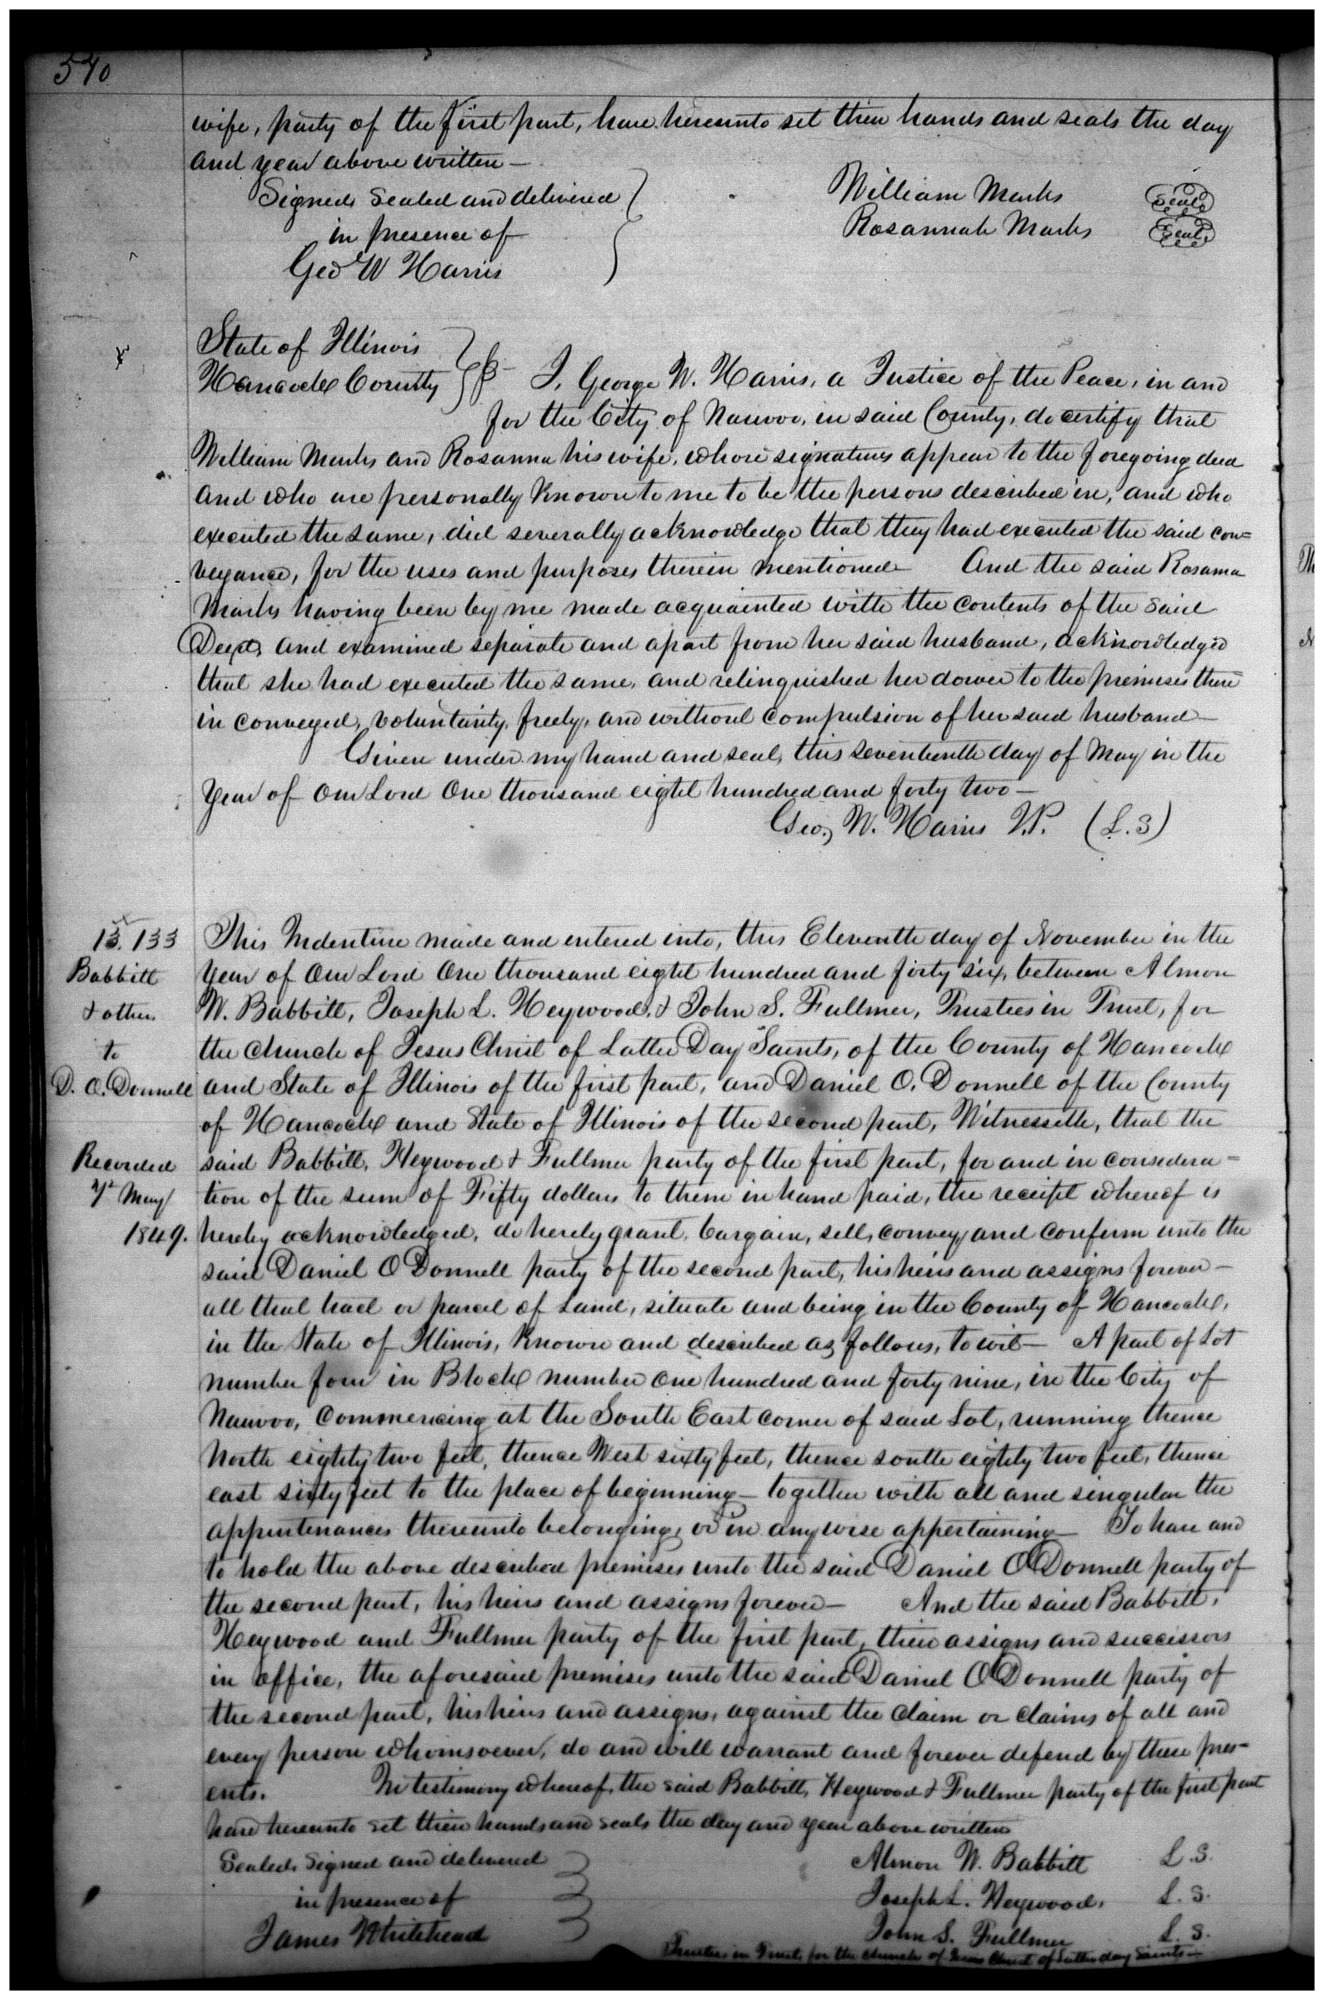 540
wife, party of the first part, have hereunto set their hands and seals the day
and year above written—
Signed Sealed and delivered
in presence of
Geo W Harris
William Marks Seal
Rosannah Marks Seal
State of Illinois
Hancock County
I, George W. Harris, a Justice of the Peace, in and
for the City of Nauvoo, in said County, do certify that
William Marks and Rosanna his wife, whose signatures appear to the foregoing deed
and who are personally known to me to be the persons described in, and who
executed the same, did severally acknowledge that they had executed the said con=
veyance, for the uses and purposes therein mentioned— And the said Rosanna
Marks having been by me made acquainted with the contents of the said
Deed, and examined separate and apart from her said husband, acknowledged
that she had executed the same, and relinquished her dower to the premises there
in conveyed, voluntarily, freely, and without compulsion of her said husband—
Given under my hand and seal, this seventeenth day of May in the
year of our Lord One thousand eight hundred and forty two—
Geo, W. Harris J.P. (L.S)
13. 133
Babbitt
& others
to
D. O. Donnell
Recorded
7th May
1849.
This Indenture made and entered into, this Eleventh day of November in the
year of our Lord One thousand eight hundred and forty six, between Almon
W. Babbitt, Joseph L. Heywood, & John S. Fullmer, Trustees in Trust, for
the church of Jesus Christ of Latter Day Saints, of the County of Hancock
and State of Illinois of the first part, and Daniel O. Donnell of the County
of Hancock and State of Illinois of the second part, Witnesseth, that the
said Babbitt, Heywood & Fullmer party of the first part, for and in considera=
tion of the sum of Fifty dollars to them in hand paid, the receipt whereof is
hereby acknowledged, do hereby grant, bargain, sell, convey and confirm unto the
said Daniel O Donnell party of the second part, his heirs and assigns forever—
all that tract or parcel of Land, situate and being in the County of Hancock,
in the State of Illinois, known and described as follows, to wit— A part of Lot
number four in Block number one hundred and forty nine, in the City of
Nauvoo, Commencing at the South East corner of said Lot, running thence
North eighty two feet, thence West sixty feet, thence south eighty two feet, thence
east sixty feet to the place of beginning— together with all and singular the
appurtenances thereunto belonging, or in any wise appertaining— To have and
to hold the above described premises unto the said Daniel O Donnell party of
the second part, his heirs and assigns forever— And the said Babbitt,
Heywood and Fullmer party of the first part, their assigns and successors
in office, the aforesaid premises unto the said Daniel O Donnell party of
the second part, his heirs and assigns, against the claim or claims of all and
every person whomsoever, do and will warrant and forever defend by these pres=
ents. In testimony whereof, the said Babbitt, Heywood & Fullmer party of the first part
have hereunto set their hands and seals the day and year above written
Sealed, Signed and delivered
in presence of
James Whitehead
Almon W. Babbitt L.S.
Joseph L. Heywood, L.S.
John S. Fullmer L.S.
Trustees in Trust, for the church of Jesus Christ of Latter day Saints—